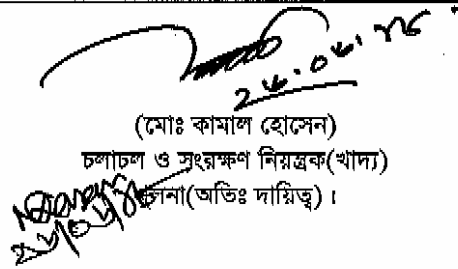 ২৮.০৮.২৫
(মোঃ কামাল হোসেন)
চলাচল ও সংরক্ষণ নিয়ন্ত্রক(খাদ্য)
খুলনা(অতিঃ দায়িত্ব)।